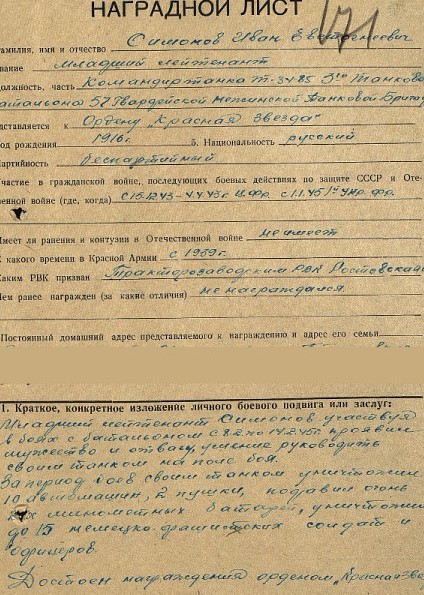 НАГРАДНОЙ ЛИСТ
171
амилия, имя и отчество Симонов Иван Евстегнеевич
вание младший лейтенант
олжность, часть Командир танка Т-34-85 3го Танково
атальона 57 Гвардейской Танковой Бригад
едставляется к Ордену „Красная Звезда"
од рождения 1916г. 5. Национальность русский
артийность беспартийный
частие в гражданской войне, последующих боевых действиях по защите СССР и Оте-
венной войне (где, когда) с 1.1.45 1 Укр. фр.
Имеет ли ранения и контузии в Отечественной войне не имеет
С какого времени в Красной Армии с 1939г.
Каким РВК призван Тракторозаводским РВК
Чем ранее награжден (за какие отличия) не награждался
Постоянный домашний адрес представляемого к награждению и адрес его семьи
1. Краткое, конкретное изложение личного боевого подвига или заслуг:
Младший лейтенант Симонов участвуя
в боях с батальоном с 8.2 по 14.2.45г. проявил
мужество и отвагу, умение руководить
своим танком на поле боя.
За период боев своим танком уничтожил
10 автомашин, 2 пушки, подавил огонь
2х минометных батарей, уничтожил
до 15 немецко-фашистских солдат и
офицеров.
Достоен награждения орденом „Красная Зве